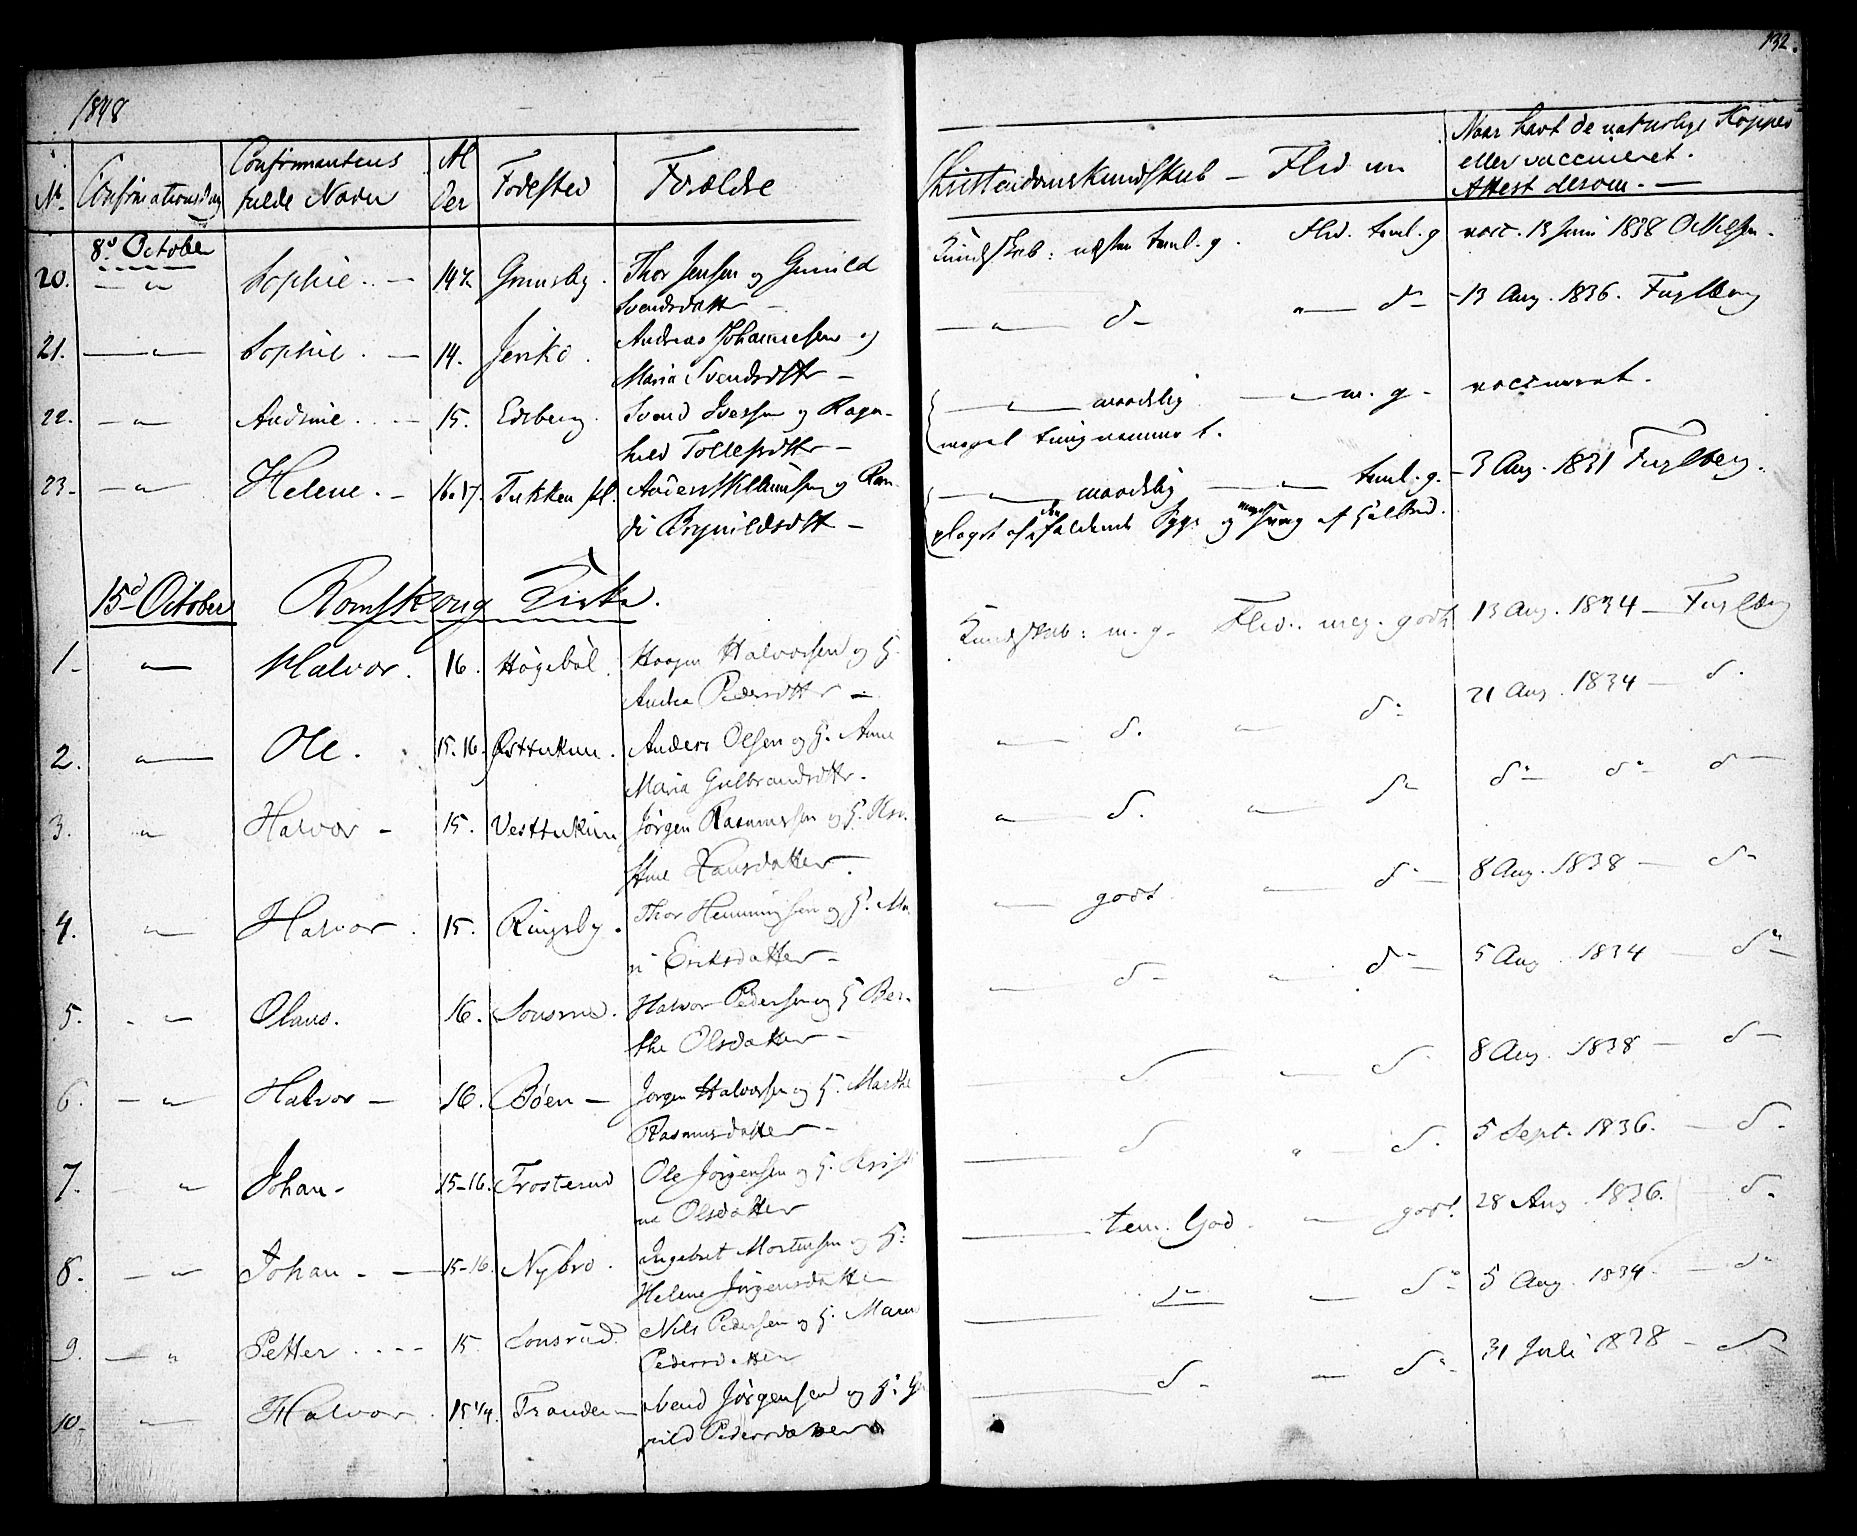 132.
1848
No. Confirmationsdag Confirmantens fulde Navn Al der Fødested Forældre
Christendomskundskab – Flid m Naar havt de naturlige Kopper
eller vaccineret.
Attest derom. —
8d October
20. — " — Sophie. — 14½ Grimsby. Thor Jensen og Gunild
Svendsdatter —
Kundskab: næsten teml. g. Flid. teml. g vacc. 13 Juni 1838
21. — " — Sophie. — 14. Jeriko. Andreas Johannesen og
Maria Svendsdttr —
— " — d— " — d— – 13 Aug. 1836. Fuglberg
22. — " — Andrine. — 15. Edsberg. Svend Iversen og Ragn-
hild Tollefsdttr —
— " — maadelig — " — m. g – vaccineret.
meget tungnemmet.
23– — " — Helene. – 16.17. Tukken pl. Anders Hellemsen og Ran-
di Brynildsdtt —
— " — maadelig — " — teml. g. – 3 Aug. 1831 Fuglberg.
plaget af den faldende Syge og meget svag af Helbred.
15d October Romskoug Kirke.
1– — " — Halvor. 16. Høgebøl. Haagen Halvorsen og H.
Andrea Pedersdttr —
Kundskab: m. g– Flid: meg. godt 13 Aug. 1834 — Fuglberg
2. — " — Ole. 15.16. Østtukun. Anders Olsen og H. Anne
Maria Gulbrandsdttr.
— " — d. — " — d– 21 Aug. 1834 — d.
3. — " — Halvor – 15. Vesttukun Jørgen Rasmussen og H. Kir-
stine Hansdatter.
— " — d. — " — d– d– d– d—
4. — " — Halvor. 15. Ringsby. Thor Hemmingsen og H. Ma-
ri Eriksdatter –
— " — godt — " — d– 8 Aug. 1838 — d–
5. – " — Olaus. 16. Sonsrud. Halvor Pedersen og H Ber-
the Olsdatter –
— " — d– " — d– 5 Aug. 1834 — d–
6. — " — Halvor — 16. Bøen — Jørgen Halvorsen og H. Marthe
Rasmusdatter –
— d — " — d. 8 Aug. 1838 — d—
7. — " Johan – 15–16. Trosterud Ole Jørgensen og H. Kristi
ne Olsdatter
— d " — d. 5 Sept. 1836. — d.
8. — " — Johan – — 15–16. Nybro. Ingebret Mortensen og H.
Helene Jørgensdatter
— tem. God. — " — godt 28 Aug. 1836. — d.
9. — " Petter. 15. Sonsrud. Nils Pedersen og H. Maren
Pedersdatter
— d– — " — d– 5 Aug. 1834. — d–
10– — " — Halvor. 15¼. Tranden — Svend Jørgensen og H. Gu
nild Pedersdatter
— d– — " — d– 31 Juli 1838 – d–